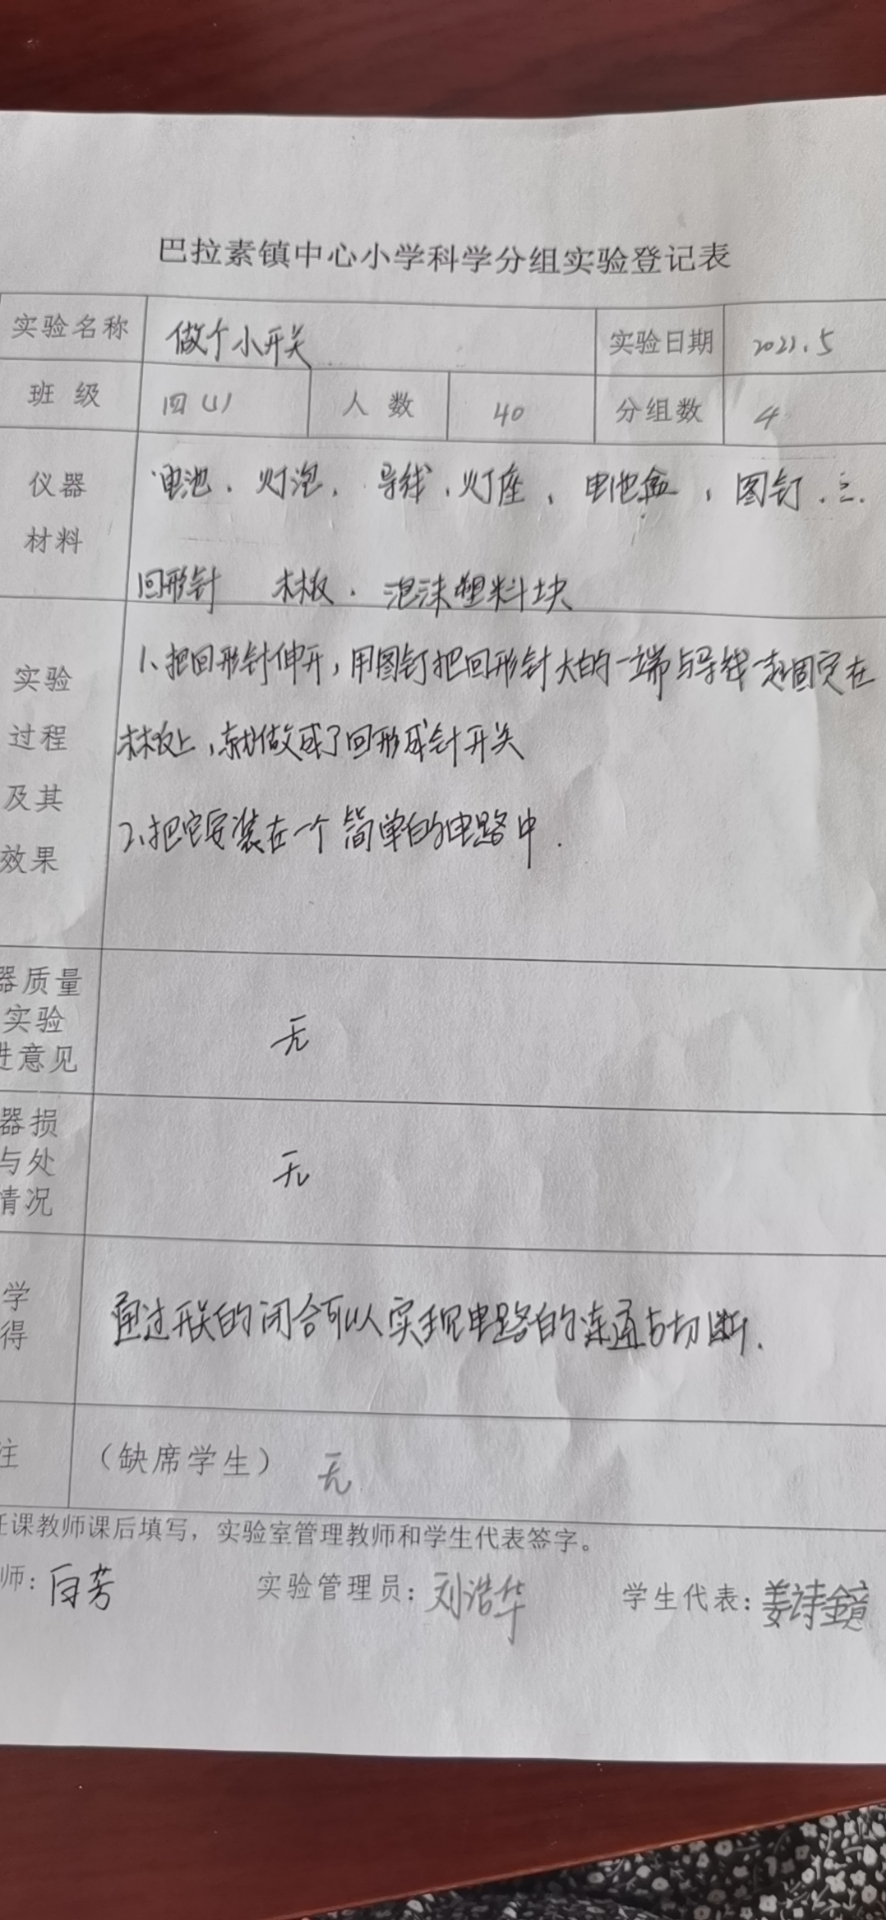 巴拉素镇中心小学科学分组实验登记表
实验名称 做个小开关 实验日期 2021.5
班 级 四(1) 人 数 40 分组数 4
仪器 电池、灯泡、导线、灯座、电池盒、图钉、
材料 回形针 木板、泡沫塑料块
实验 1、把回形针伸开,用图钉把回形针大的一端与导线一起固定在
过程 木板上,就做成了回形成针开关
及其 2、把它安装在一个简单的电路中.
效果
器质量
实验 无
进意见
器损
与处 无
情况
学 通过开关的闭合可以实现电路的连通与切断.
得
注 (缺席学生) 无
任课教师课后填写,实验室管理教师和学生代表签字。
师: 芳 实验管理员: 刘浩华 学生代表: 姜诗